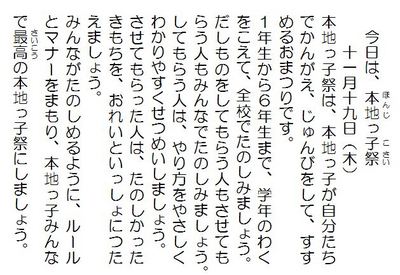 今日は、本地っ子祭
ほんじ こさい
十一月十九日（木）
本地っ子祭は、本地っ子が自分たち
でかんがえ、じゅんびをして、すす
めるおまつりです。
１年生から６年生まで、学年のわく
をこえて、全校でたのしみましょう。
だしものをしてもらう人もさせても
らう人もみんなでたのしみましょう。
してもらう人は、やり方をやさしく
わかりやすくせつめいしましょう。
させてもらった人は、たのしかった
きもちを、おれいといっしょにつた
えましょう。
みんながたのしめるように、ルール
とマナーをまもり、本地っ子みんな
で最高の本地っ子祭にしましょう。
さいこう